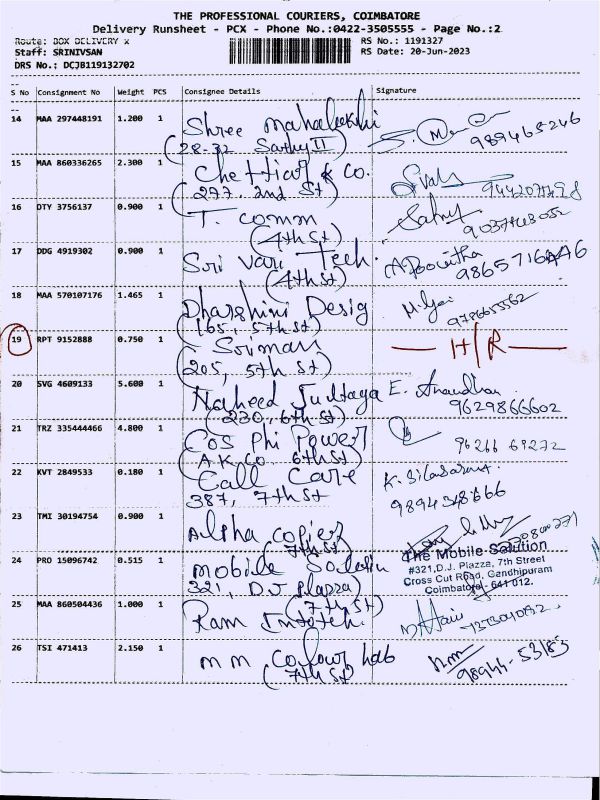 THE PROFESSIONAL COURIERS, COIMBATORE
Delivery Runsheet - PCX - Phone No.:0422-3505555 - Page No.:2
Route: BOX DELIVERY x
RS No.: 1191327
Staff: SRINIVSAN
RS Date: 20-Jun-2023
DRS No.: DCJB119132702
S No Consignment No Weight PCS Consignee Details Signature
14 MAA 297448191 1.200 1 Shree Mahalakshi
(28-32 Sathy II)
9894465246
15 MAA 860336265 2.300 1 Chettiar & Co.
(277, 2nd St)
16 DTY 3756137 0.900 1 T. Comm
(4th St)
17 DDG 4919302 0.900 1 Sri Vari Tech.
(4th St)
18 MAA 570107176 1.465 1 Dharshini Desig
(165, 5th St)
19 RPT 9152888 0.750 1 Sriman H/R
(205, 5th St)
20 SVG 4609133 5.600 1 Naheed Sultaya E.
(230, 6th St) 9629866602
21 TRZ 335444466 4.800 1 Cos Phi Power
(A.K. Co 6th St) 96266 69272
22 KVT 2849533 0.180 1 Call Care
387, 7th St
23 TMI 30194754 0.900 1 Alpha Copier
7th St
24 PRO 15096742 0.515 1 Mobile Solution
321, D.J Plazza)
(7th St)
The Mobile Solution
#321,D.J. Plazza, 7th Street
Cross Cut Road, Gandhipuram
Coimbatore - 641 012.
25 MAA 860504436 1.000 1 Ram Infotech.
26 TSI 471413 2.150 1 mm Colour Lab
(7th St) 98944-53183